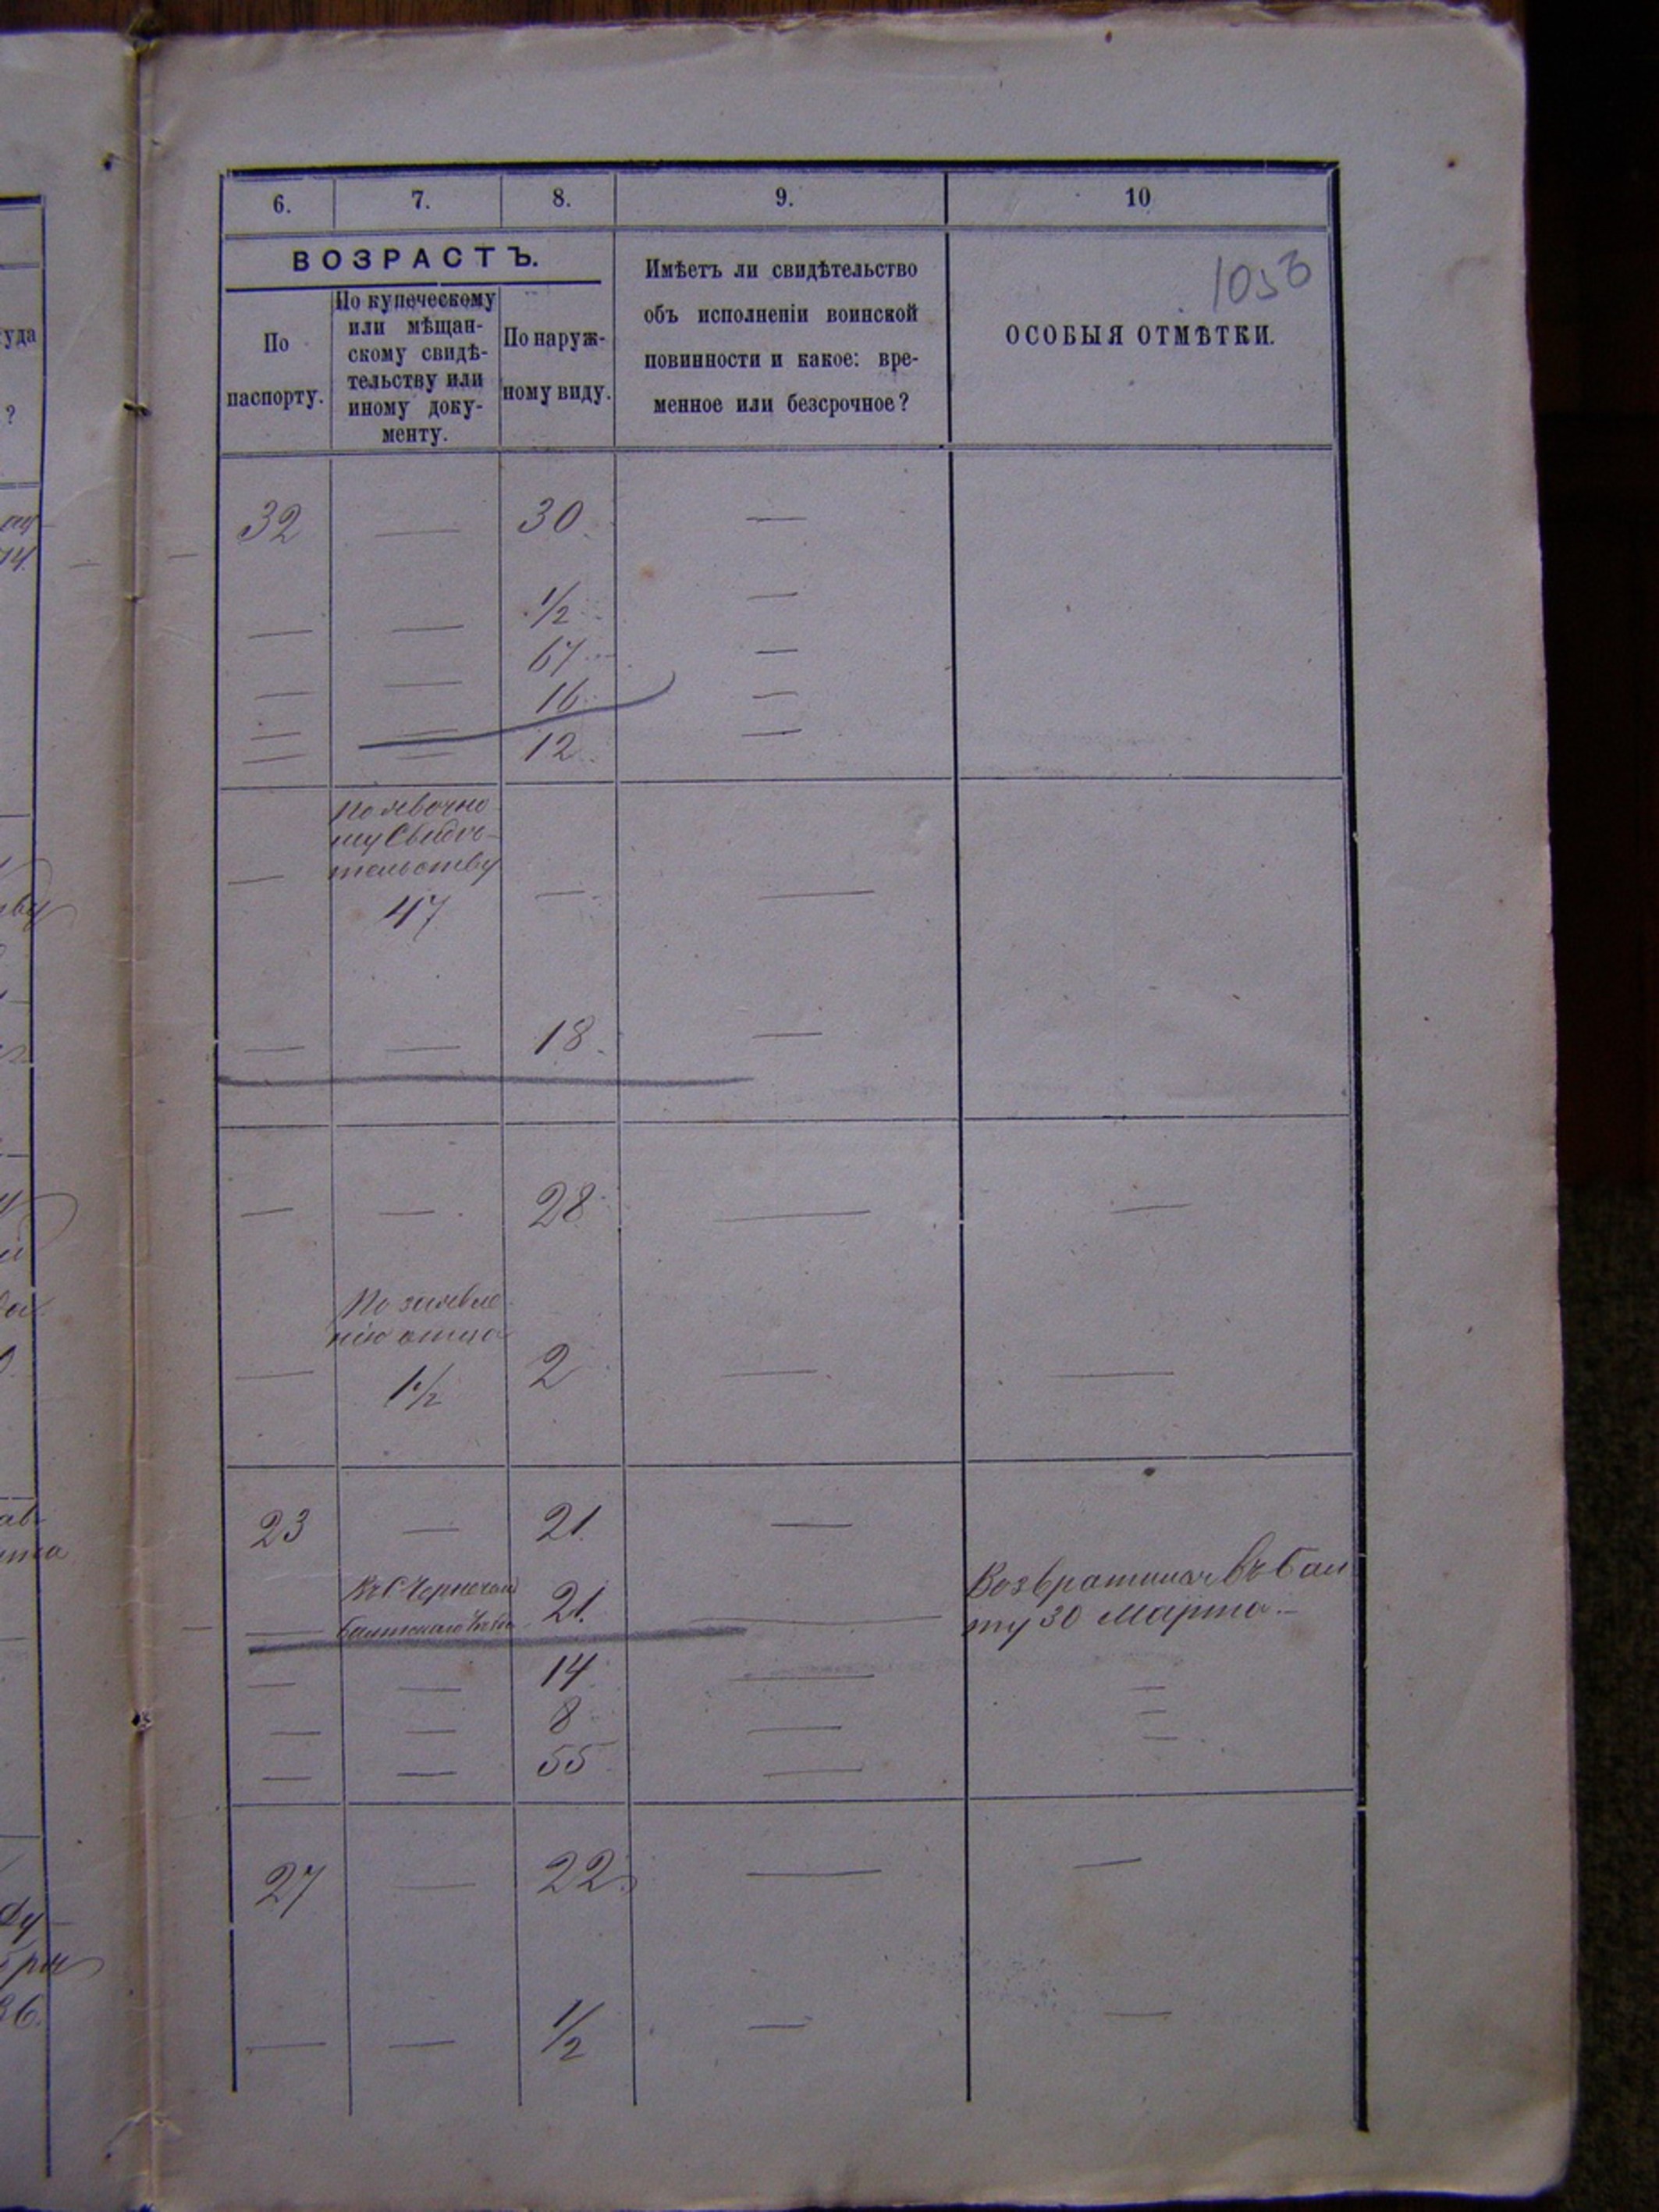 уда
?
6. 7. 8. 9. 10
ВОЗРАСТЪ.
По
паспорту.
По купеческому
или мѣщан-
скому свидѣ-
тельству или
иному доку-
менту.
По наруж-
ному виду.
Имѣетъ ли свидѣтельство
объ исполненіи воинской
повинности и какое: вре-
менное или безсрочное?
ОСОБЫЯ ОТМѢТКИ.
32 — 30 —
— — 1/2 —
— — 67 —
— — 16 —
— — 12 —
По явочно
му Свидѣ-
тельству
— 47 — —
— — 18 —
— — 28 — —
По заявле
нію отца
— 1 1/2 2 — —
23 — 21 —
— 21. — Возвратилась въ Бал
ту 30 Марта.—
— — 14 — —
— — 8 — —
— — 55 — —
27 — 22 — —
— — 1/2 — —